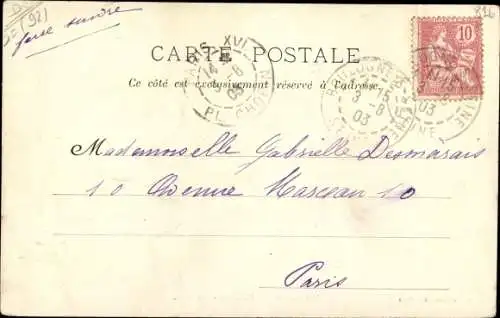 (92)
816
10
CARTE POSTALE
Ce côté est exclusivement réservé à l'adresse.
PARIS XVI
03
PL. CHOPIN
BOULOGNE
3 15
8
03
SEINE
Mademoiselle Gabrielle Desmarais
10 Avenue Marceau 10
Paris